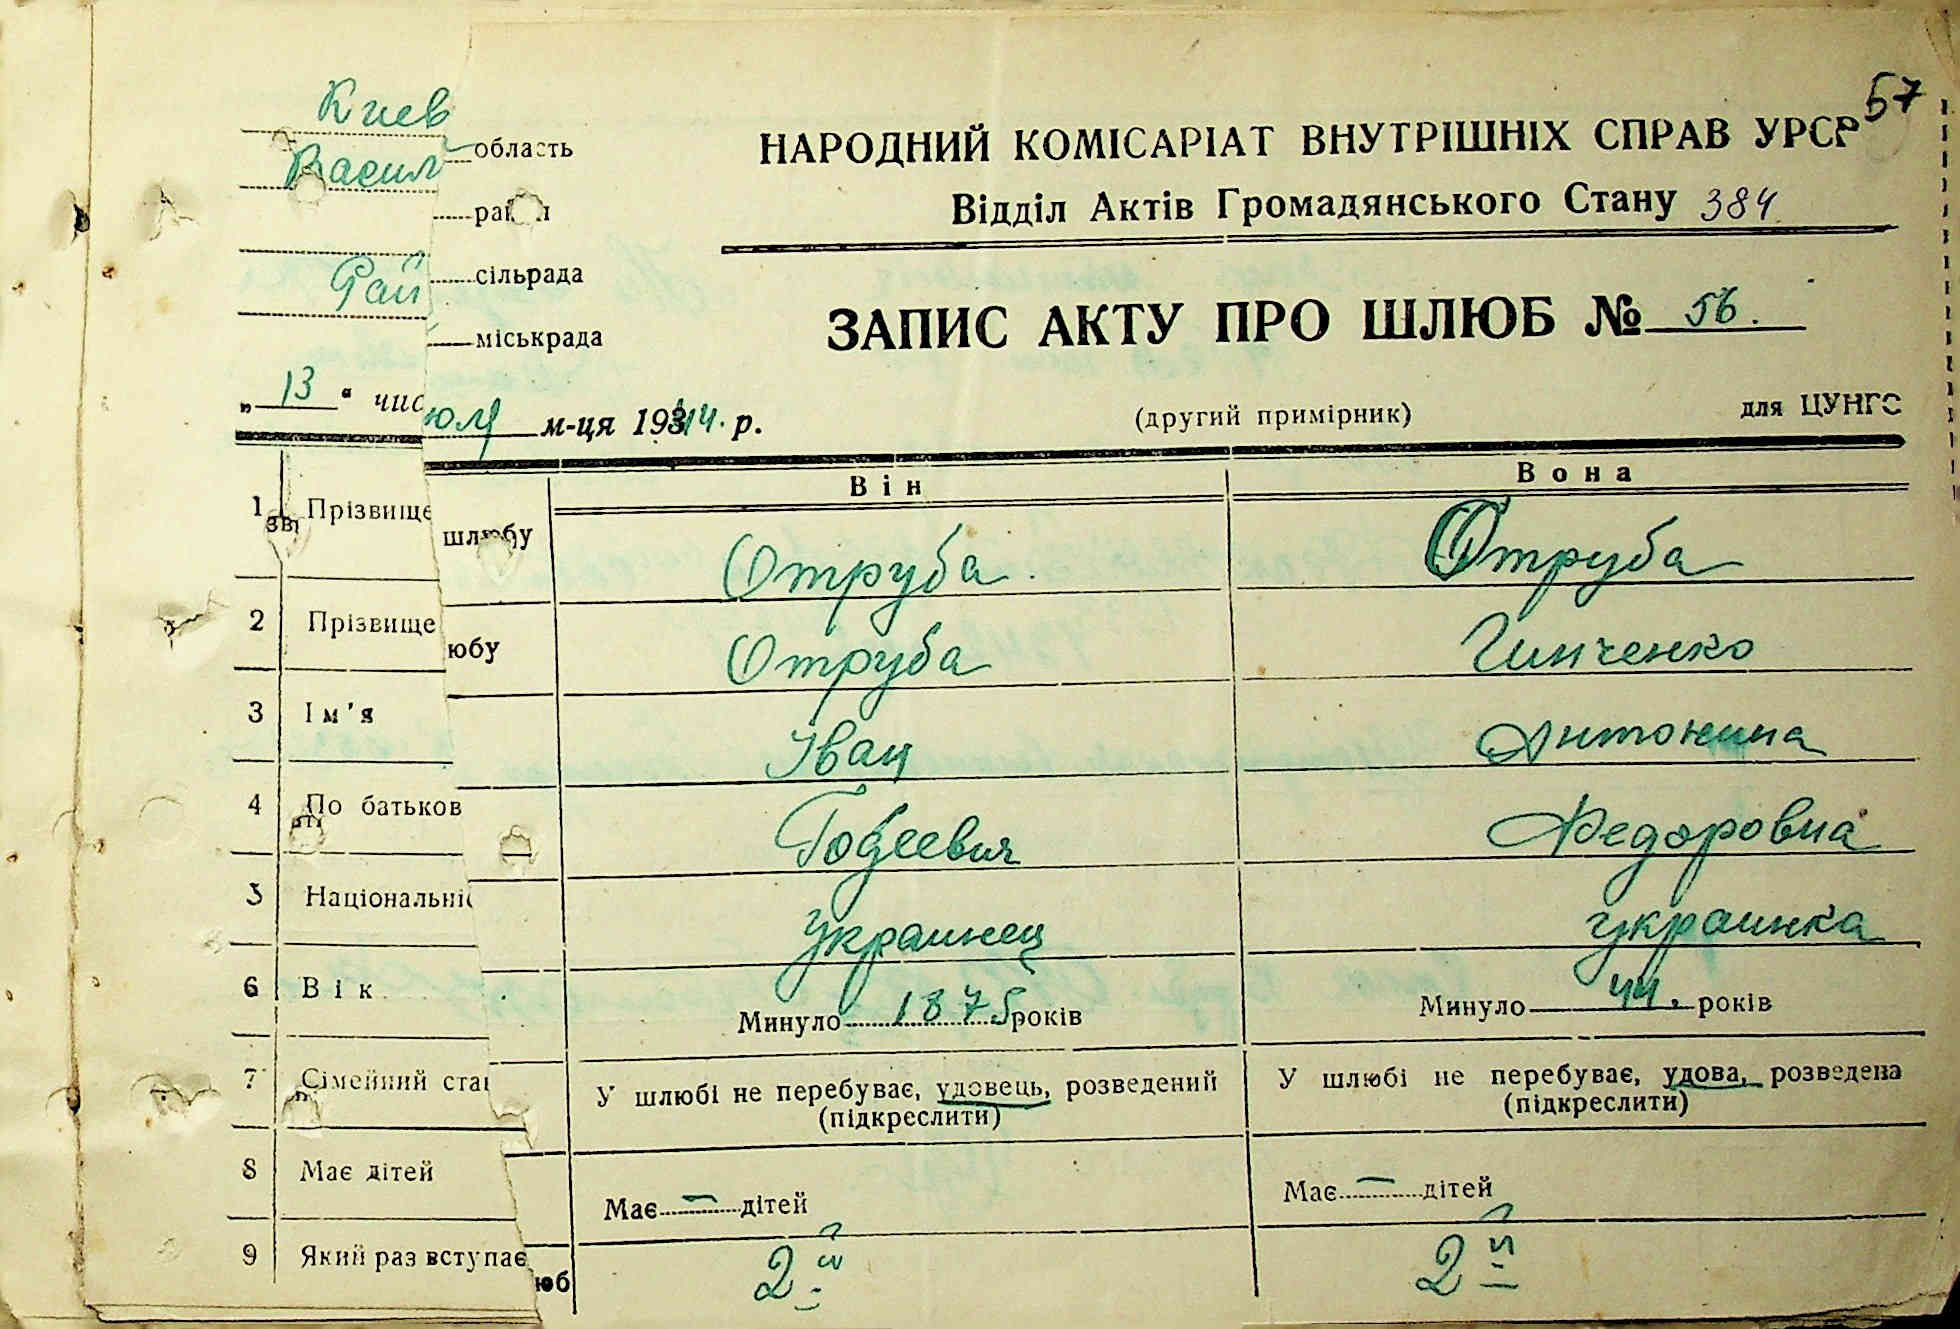 57
Киев
область
Васил
НАРОДНИЙ КОМІСАРІАТ ВНУТРІШНІХ СПРАВ УРСР
Відділ Актів Громадянського Стану 384
сільрада
Рай
міськрада
ЗАПИС АКТУ ПРО ШЛЮБ № 56.
„ 13 “ чис юля м-ця 1944. р.
(другий примірник)
для ЦУНГО
Він Вона
1 Прізвище шлюбу Отруба Отруба
2 Прізвище юбу Отруба Гинченко
3 Ім'я Іван Антонина
4 По батьков Федоровна
5 Національніс украинец украинка
6 Вік Минуло 1875 років Минуло 44. років
7 Сімейний ста У шлюбі не перебуває, удовець, розведений У шлюбі не перебуває, удова, розведена
(підкреслити) (підкреслити)
8 Має дітей Має — дітей Має — дітей
9 Який раз вступає юб 2й 2й